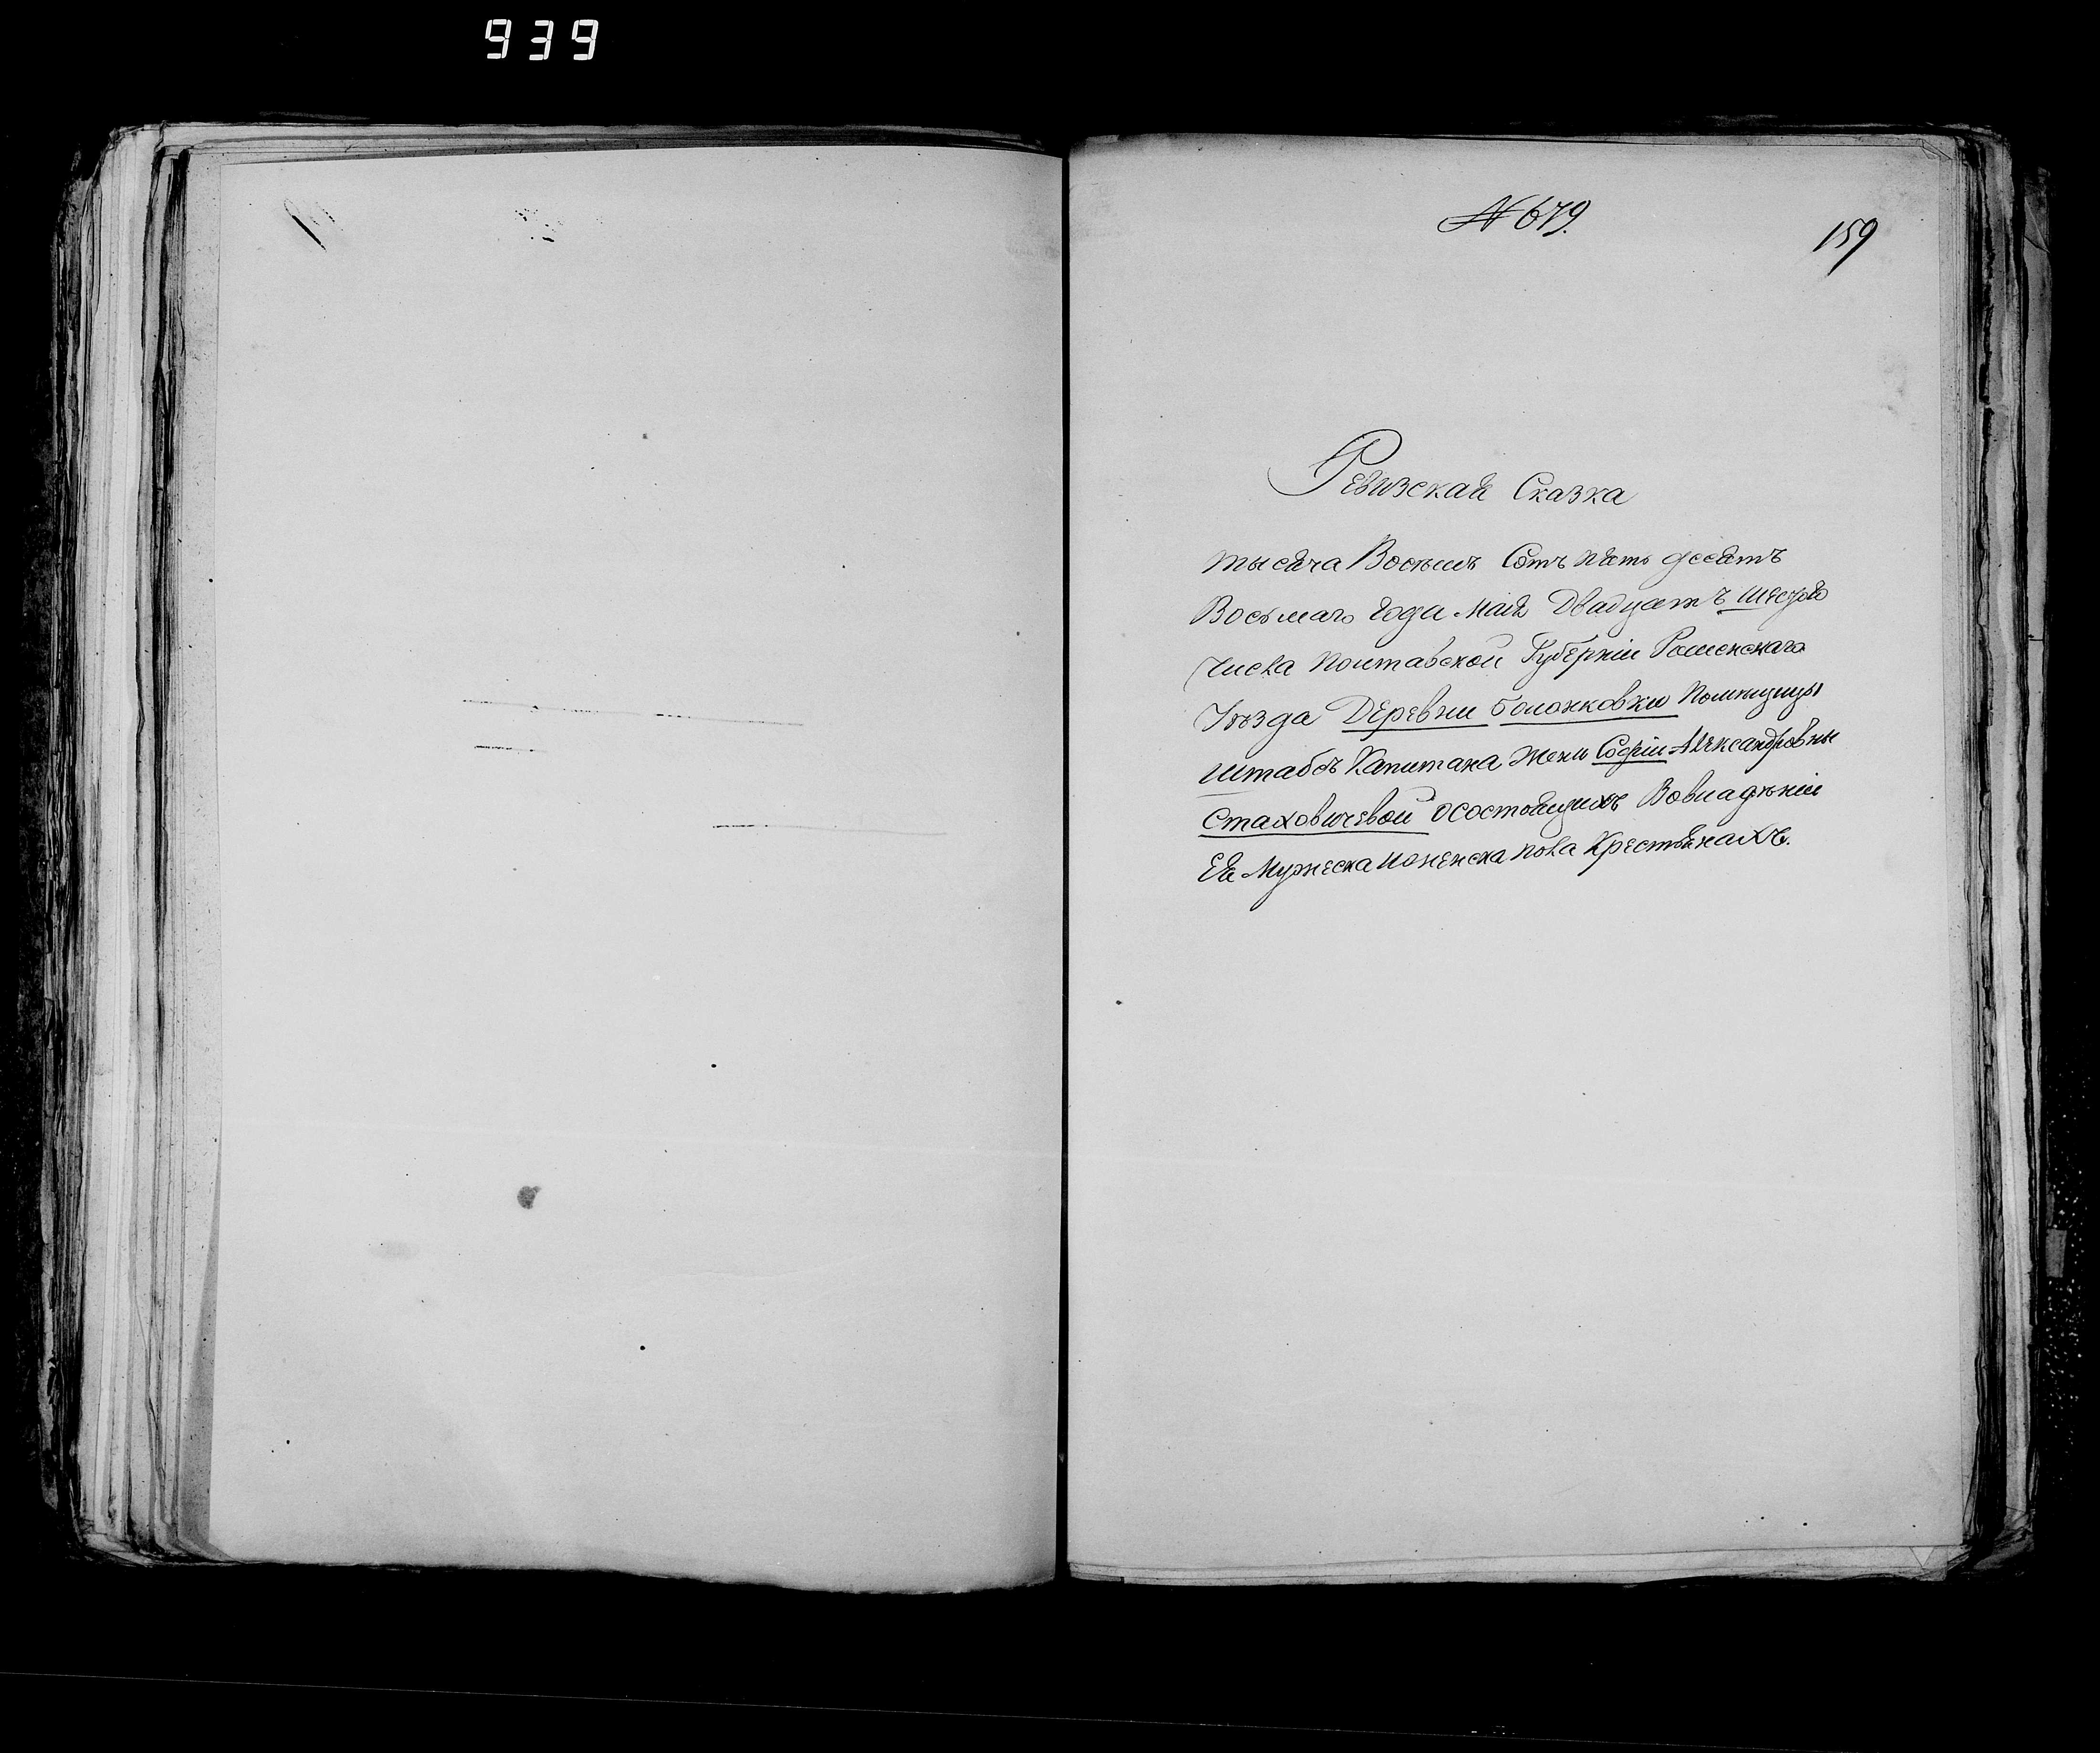 939
№ 679.
159
Ревизская Сказка
тысяча Восемь Сотъ пять десятъ
Восьмаго года Мая Двадцатъ шестго
Числа Полтавской Губерніи Роменскаго
Уѣзда Деревни Болотковки Помѣщицы
Штабсъ Капитана жены Софіи Александровны
Стаховичевой осостоящихъ Вовладѣніи
Ея Мужеска иженска пола Крестьянахъ.